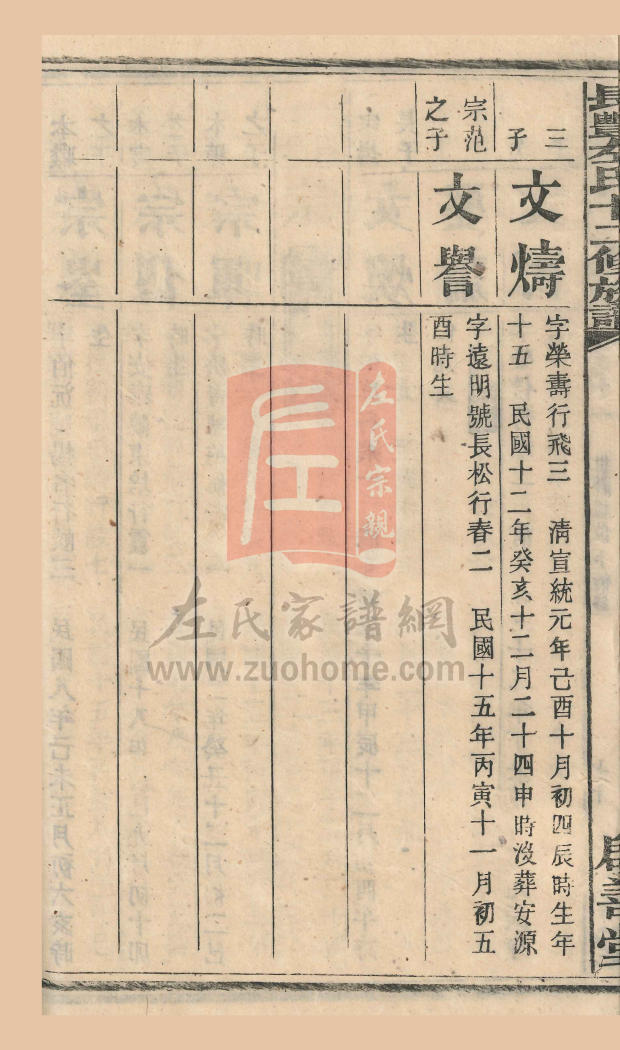 長豐左氏十二修族譜
三子
文燽
字榮壽行飛三　清宣統元年己酉十月初四辰時生年
十五　民國十二年癸亥十二月二十四申時没葬安源
宗范之子
文譽
字遠明號長松行春二　民國十五年丙寅十一月初五
酉時生
左氏宗親
左氏家譜網
www.zuohome.com